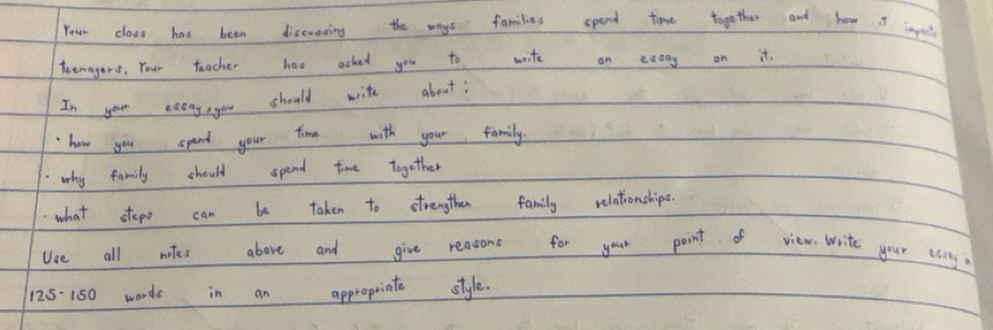 Your class has been discussing the ways families spend time together and how it impacts
teenagers. Your teacher has asked you to write an essay on it.
In your essay, you should write about:
· how you spend your time with your family.
· why family should spend time together
· what steps can be taken to strengthen family relationships.
Use all notes above and give reasons for your point of view. Write your essay in
125-150 words in an appropriate style.